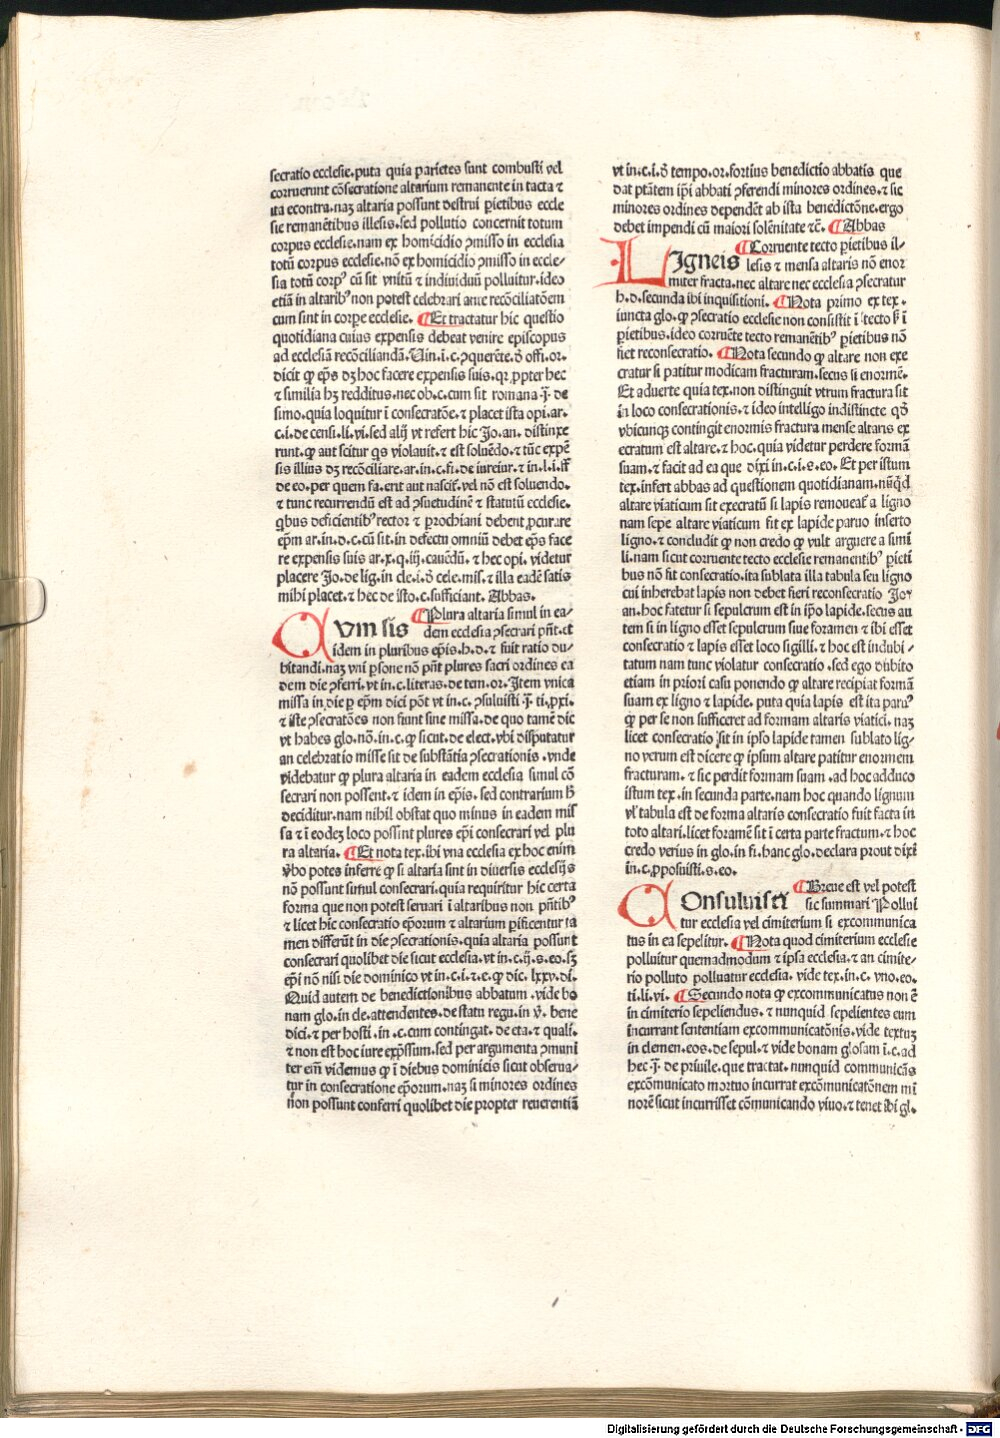 secratio ecclesie.puta quia parietes sunt combusti vel
corruerunt cōsecratione altarium remanente in tacta ⁊
ita econtra.naꝫ altaria possunt destrui ꝑietibus eccle
sie remanētibus illesis.sed pollutio concernit totum
corpus ecclesie.nam ex homicidio ꝯmisso in ecclesia
totū corpus ecclesie.nō ex homicidio ꝯmisso in eccle-
sia totū corpꝰ cū sit vnitū ⁊ indiuiduū polluitur.ideo
etiā in altaribꝰ non potest celebrari ante recōciliatōem
cum sint in corꝑe ecclesie. ¶Et tractatur hic questio
quotidiana cuius expensis debeat venire episcopus
ad ecclesiā recōciliandā. Vin.i.c.ꝯquerēte.ō offi.or.
dicit ꝙ ep̄s dꝫ hoc facere expensis suis.qꝛ ꝓpter hec
⁊ similia hꝫ redditus.nec ob.c.cum sit romana .j. de
simo.quia loquitur ī consecratōe.⁊ placet ista opi.ar.
c.i.de censi.li.vi.sed alij vt refert hic Jo.an. distinxe
runt.ꝙ aut scitur qs violauit.⁊ est soluēdo.⁊ tūc expē
sis illius dꝫ recōciliare.ar.in.c.fi.de iureiur.⁊ in.l.i.ff
de eo.per quem fa.erit aut nascit̄.vel nō est soluendo.
⁊ tunc recurrendū est ad ꝯsuetudinē ⁊ statutū ecclesie.
qbus deficientibꝰ rector ⁊ ꝑrochiani debent ꝓcurare
ep̄m ar.in.d.c.cū sit.in defectu omniū debet ep̄s face
re expensis suis ar.x.q.iij.cauēdū.⁊ hec opi. videtur
placere Jo.de lig.in cle.i.ō cele.mis.⁊ illa eadē satis
mihi placet.⁊ hec de isto.c.sufficiant. Abbas.
¶Plura altaria simul in ea-
CVm sis dem ecclesia ꝯsecrari pn̄t.et
idem in pluribus ep̄is.h.d.⁊ fuit ratio du-
bitandi.naꝫ vni ꝑsone nō pn̄t plures sacri ordines ea
dem die ꝯferri.vt in.c.literas.de tem.or.Item vnica
missa in die ꝑ ep̄m dici pōt vt in.c. ꝯsuluisti .j. ti.ꝓxi.
⁊ iste ꝯsecratōes non fiunt sine missa.de quo tamē dic
vt habes glo.nō.in.c.ꝙ sicut.de elect.vbi disputatur
an celebratio misse sit de substātia ꝯsecrationis .vnde
videbatur ꝙ plura altaria in eadem ecclesia simul cō
secrari non possent.⁊ idem in ep̄is. sed contrarium h̄
deciditur.nam nihil obstat quo minus in eadem mis
sa ⁊ ī eodeꝫ loco possint plures ep̄i consecrari vel plu
ra altaria. ¶Et nota tex.ibi vna ecclesia ex hoc enim
v̄bo potes inferre ꝙ si altaria sint in diuersis ecclesijs
nō possunt simul consecrari.quia requiritur hic certa
forma que non potest seruari ī altaribus non pn̄tibꝰ
⁊ licet hic consecratio ep̄orum ⁊ altarium ꝑificentur ta
men differūt in die ꝯsecrationis.quia altaria possunt
consecrari quolibet die sicut ecclesia.vt in.c.ij.s.eo.sꝫ
ep̄i nō nisi die dominico vt in.c.i.⁊.e.ꝙ dic. lxxv.di.
Quid autem de benedictionibus abbatum .vide bo
nam glo.in cle.attendentes.de statu regu.in v̄. bene
dici.⁊ per hosti.in .c.cum contingat. de eta.⁊ quali.
⁊ non est hoc iure exp̄ssum.sed per argumenta ꝯmuni
ter eni videmus ꝙ ī diebus dominicis sicut obserua-
tur in consecratione ep̄orum.naꝫ si minores ordines
non possunt conferri quolibet die propter reuerentiā
vt in.c.i.ō tempo.or.fortius benedictio abbatis que
dat ptātem ip̄i abbati ꝯferendi minores ordines.⁊ sic
minores ordines dependēt ab ista benedictōne.ergo
debet impendi cū maiori solēnitate ⁊c̄. ¶Abbas
¶Corruente tecto ꝑietibus il-
LIgneis lesis ⁊ mensa altaris nō enor
miter fracta.nec altare nec ecclesia ꝯsecratur
h.d.secunda ibi inquisitioni. ¶Nota primo ex tex.
iuncta glo.ꝙ ꝯsecratio ecclesie non consistit ī tecto s̄ ī
ꝑietibus.ideo corruēte tecto remanētibꝰ ꝑietibus nō
fiet reconsecratio. ¶Nota secundo ꝙ altare non exe
cratur si patitur modicam fracturam.secus si enormē.
Et aduerte quia tex.non distinguit vtrum fractura sit
in loco consecrationis.⁊ ideo intelligo indistincte qō
vbicunqꝫ contingit enormis fractura mense altaris ex
ecratum est altare.⁊ hoc.quia videtur perdere formā
suam.⁊ facit ad ea que dixi in.c.i.s.eo. Et per istum
tex.infert abbas ad questionem quotidianam.nūqd
altare viaticum sit execratū si lapis remoueat̄ a ligno
nam sepe altare viaticum fit ex lapide paruo inserto
ligno.⁊ concludit ꝙ non credo ꝙ vult arguere a simi
li.nam sicut corruente tecto ecclesie remanentibꝰ ꝑieti
bus nō fit consecratio.ita sublata illa tabula seu ligno
cui inherebat lapis non debet fieri reconsecratio Jo.
an.hoc fatetur si sepulcrum est in ip̄o lapide.secus au
tem si in ligno esset sepulcrum siue foramen ⁊ ibi esset
consecratio ⁊ lapis esset loco sigilli.⁊ hoc est indubi-
tatum nam tunc violatur consecratio .sed ego dubito
etiam in priori casu ponendo ꝙ altare recipiat formā
suam ex ligno ⁊ lapide. puta quia lapis est ita paruꝰ
ꝙ per se non sufficeret ad formam altaris viatici. naꝫ
licet consecratio sit in ipso lapide tamen sublato lig-
no verum est dicere ꝙ ipsum altare patitur enormem
fracturam.⁊ sic perdit formam suam .ad hoc adduco
istum tex.in secunda parte.nam hoc quando lignum
vl̄ tabula est de forma altaris consecratio fuit facta in
toto altari.licet foramē sit ī certa parte fractum.⁊ hoc
credo verius in glo.in fi.hanc glo.declara prout dixi
in.c.ꝓposuisti.s.eo.
¶Breue est vel potest
COnsuluisti sic summari Pollui
tur ecclesia vel cimiterium si excommunica
tus in ea sepelitur. ¶Nota quod cimiterium ecclesie
polluitur quemadmodum ⁊ ipsa ecclesia.⁊ an cimite-
rio polluto polluatur ecclesia. vide tex.in.c. vno.eo.
ti.li.vi. ¶Secundo nota ꝙ excommunicatus non ē
in cimiterio sepeliendus.⁊ nunquid sepelientes eum
incurrant sententiam excommunicatōnis.vide textuꝫ
in clemen.eos.de sepul.⁊ vide bonam glosam ī.c.ad
hec .j. de priuile.que tractat.nunquid communicās
excōmunicato mortuo incurrat excōmunicatōnem mi
norē sicut incurrisset cōmunicando viuo.⁊ tenet ibi gl.
Digitalisierung gefördert durch die Deutsche Forschungsgemeinschaft - DFG